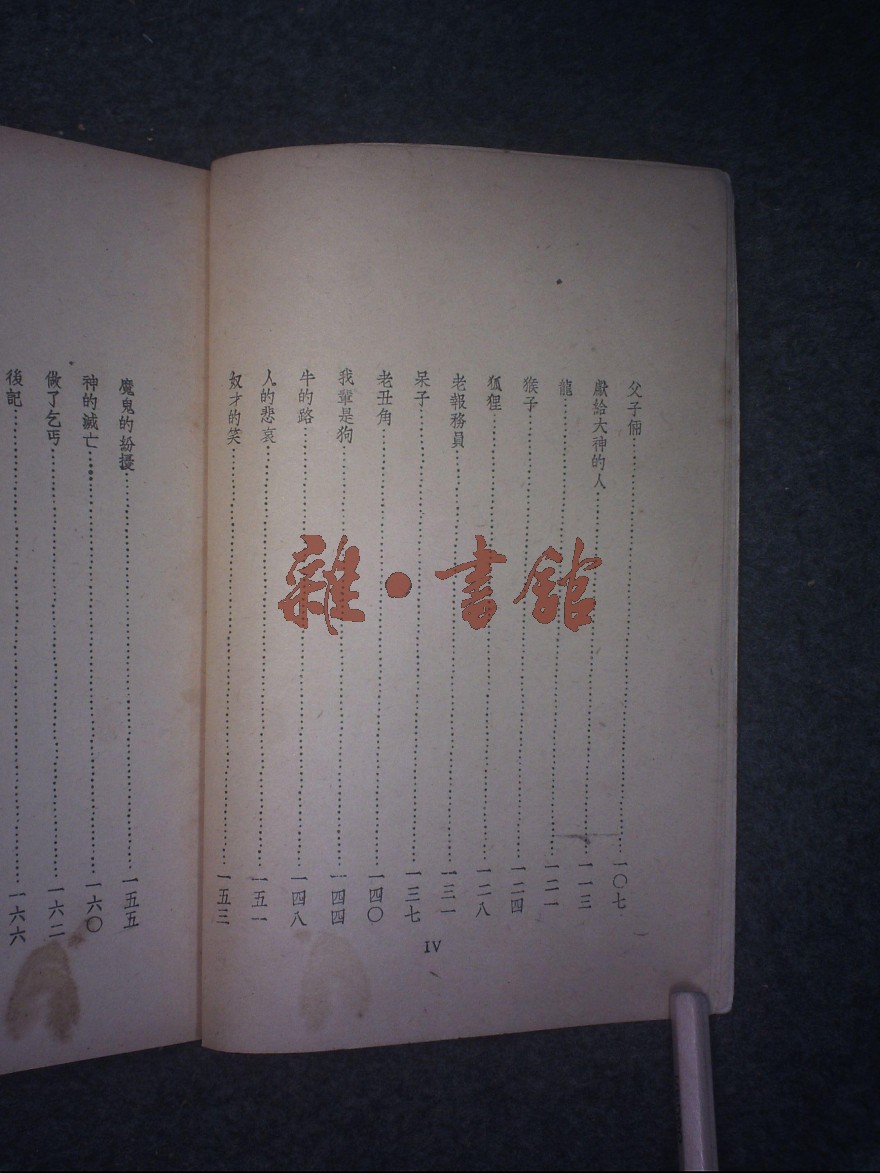 父子倆……一〇七
獻給大神的人……一一三
龍……一二一
猴子……一二四
狐狸……一二八
老報務員……一三一
呆子……一三七
老丑角……一四〇
我輩是狗……一四四
牛的路……一四八
人的悲哀……一五一
奴才的笑……一五三
IV
魔鬼的紛擾……一五五
神的滅亡……一六〇
做了乞丐……一六二
後記……一六六
雜·書館